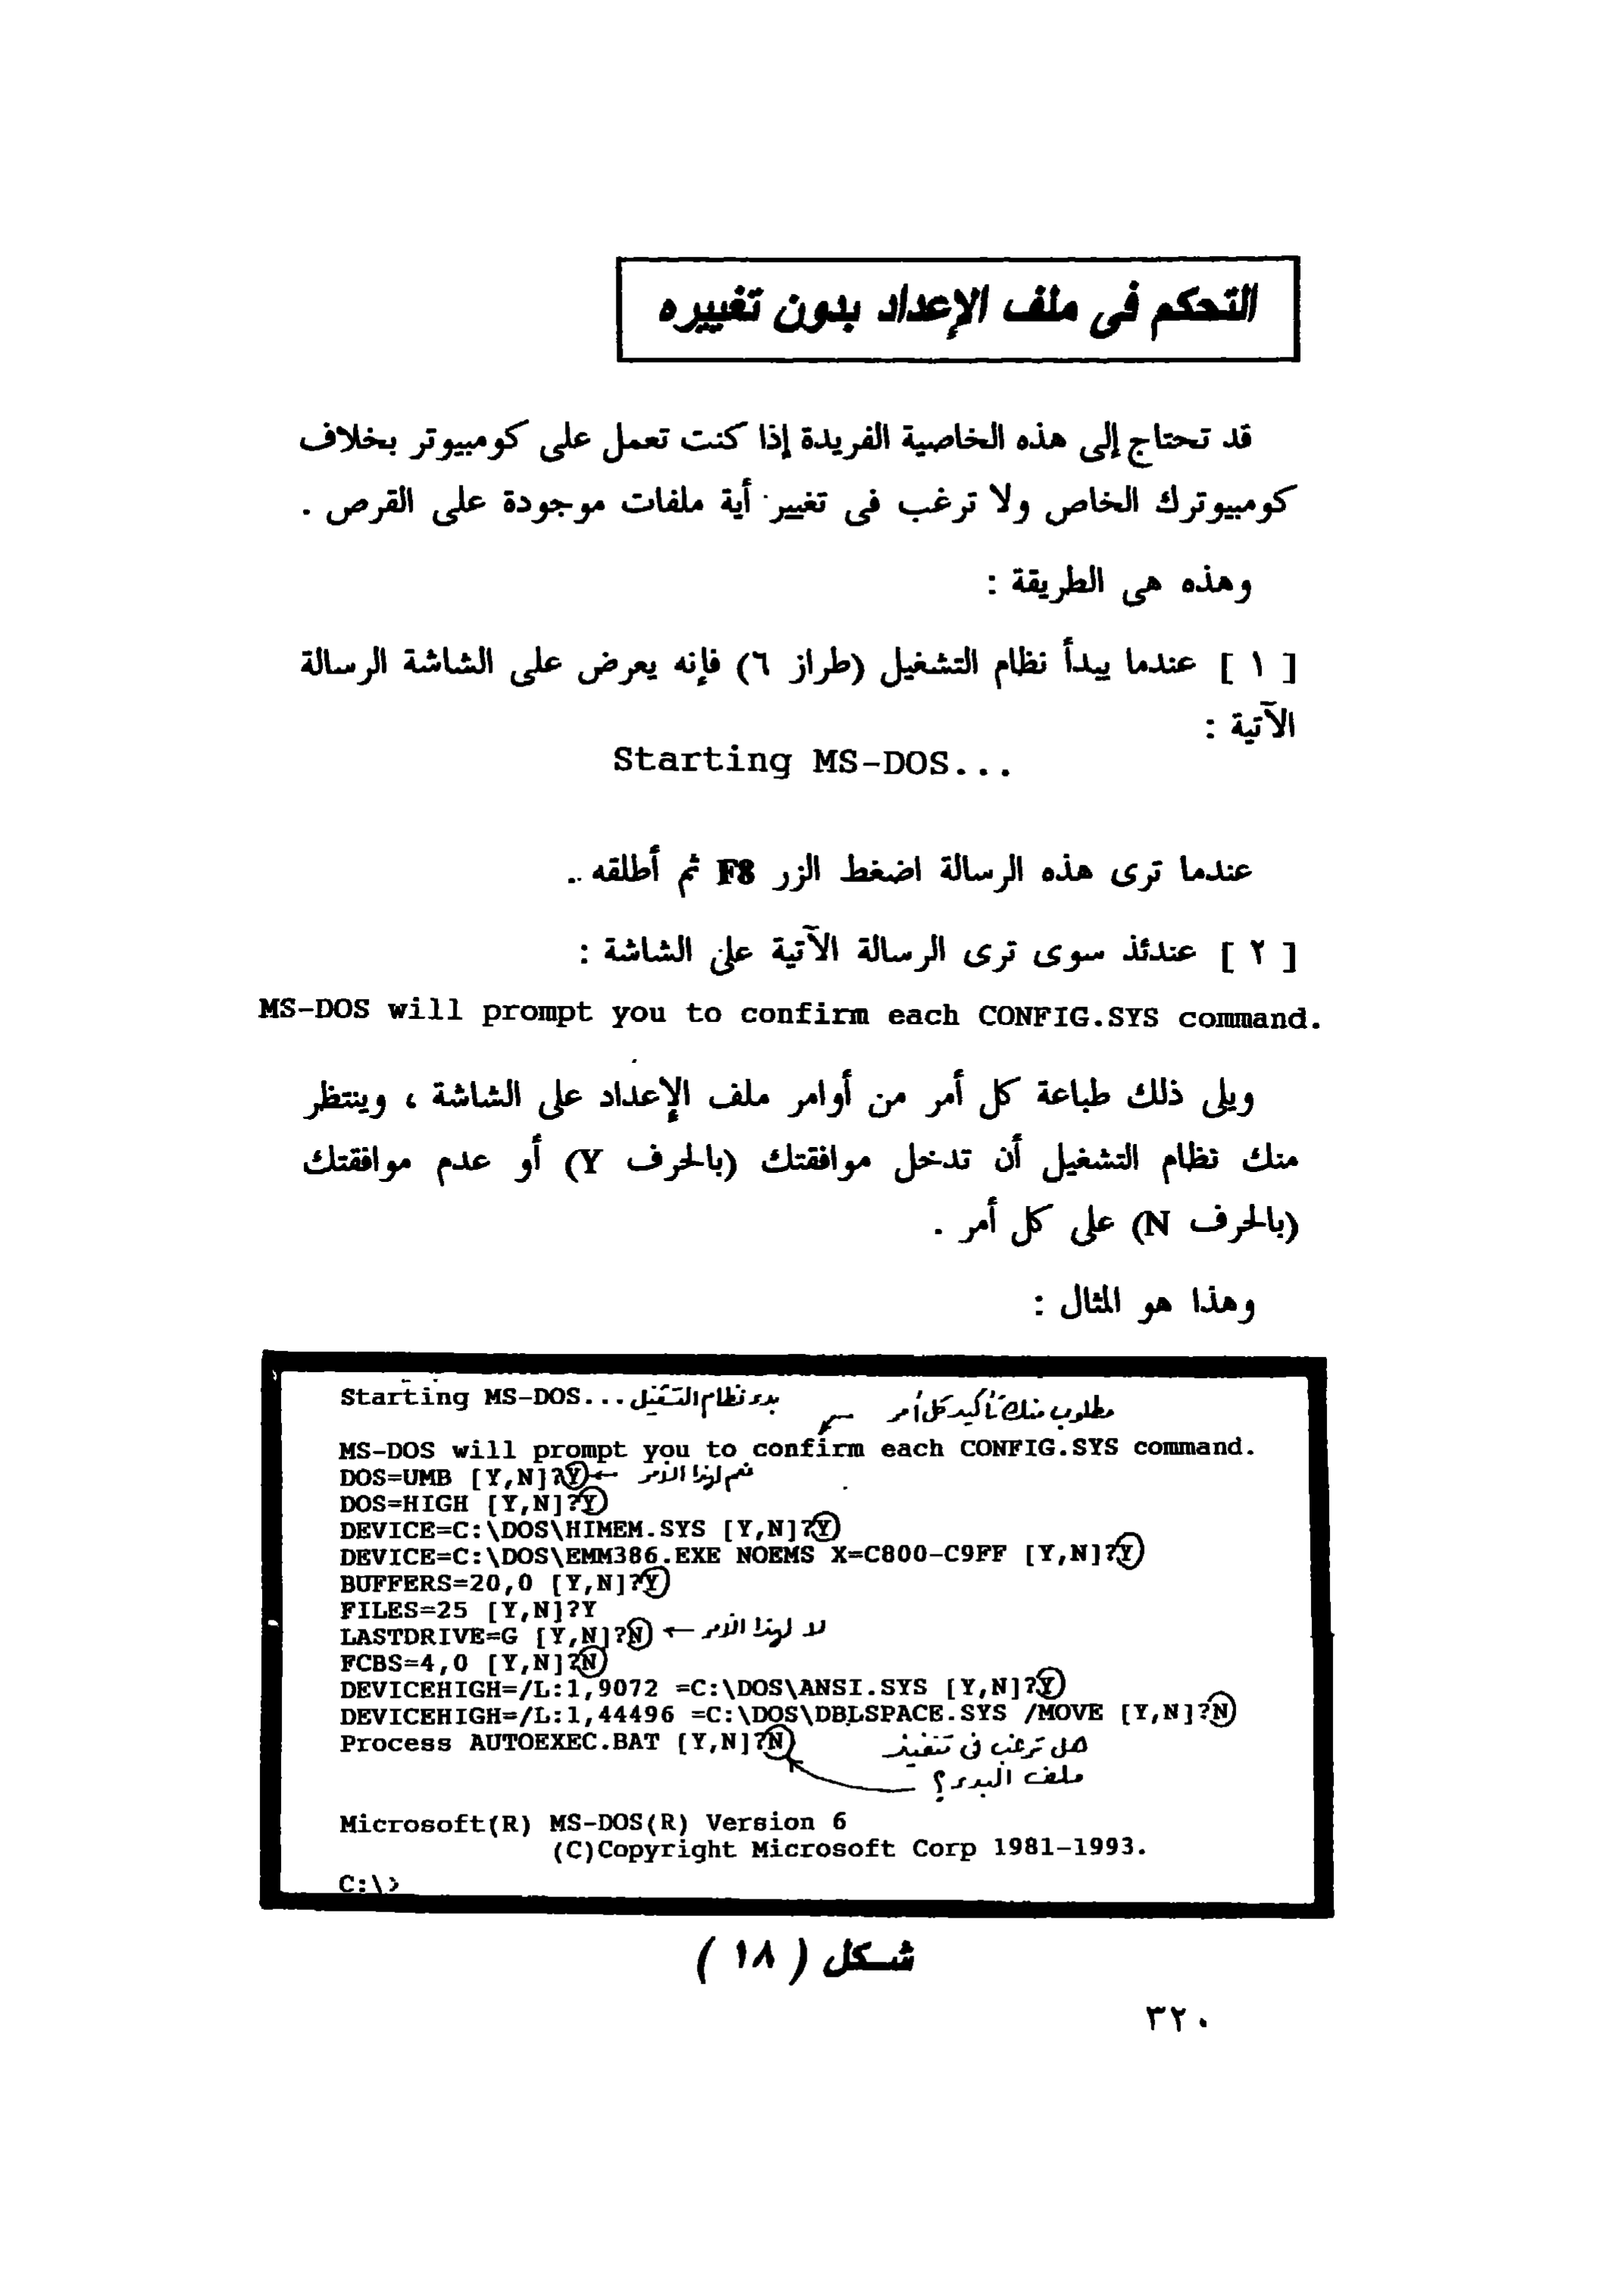 التحكم فى ملف الإعداد بدون تغييره
قد تحتاج إلى هذه الخاصية الفريدة إذا كنت تعمل على كومبيوتر بخلاف
كومبيوترك الخاص ولا ترغب فى تغيير أية ملفات موجودة على القرص .
وهذه هى الطريقة :
[ ١ ] عندما يبدأ نظام التشغيل (طراز ٦) فإنه يعرض على الشاشة الرسالة
الآتية :
Starting MS-DOS...
عندما ترى هذه الرسالة اضغط الزر F8 ثم أطلقه .
[ ٢ ] عندئذ سوى ترى الرسالة الآتية على الشاشة :
MS-DOS will prompt you to confirm each CONFIG.SYS command.
ويلى ذلك طباعة كل أمر من أوامر ملف الإعداد على الشاشة ، وينتظر
منك نظام التشغيل أن تدخل موافقتك (بالحرف Y) أو عدم موافقتك
(بالحرف N) على كل أمر .
وهذا هو المثال :
Starting MS-DOS... بدء نظام التشغيل مطلوب منك تأكيد كل أمر
MS-DOS will prompt you to confirm each CONFIG.SYS command.
DOS=UMB [Y,N]?Y ← نعم لهذا الأمر
DOS=HIGH [Y,N]?Y
DEVICE=C:\DOS\HIMEM.SYS [Y,N]?Y
DEVICE=C:\DOS\EMM386.EXE NOEMS X=C800-C9FF [Y,N]?Y
BUFFERS=20,0 [Y,N]?Y
FILES=25 [Y,N]?Y
LASTDRIVE=G [Y,N]?N ← لا لهذا الأمر
FCBS=4,0 [Y,N]?N
DEVICEHIGH=/L:1,9072 =C:\DOS\ANSI.SYS [Y,N]?Y
DEVICEHIGH=/L:1,44496 =C:\DOS\DBLSPACE.SYS /MOVE [Y,N]?N
Process AUTOEXEC.BAT [Y,N]?N هل ترغب فى تنفيذ
ملف البدء ؟
Microsoft(R) MS-DOS(R) Version 6
(C)Copyright Microsoft Corp 1981-1993.
C:\>
شـكل ( ١٨ )
٣٢٠